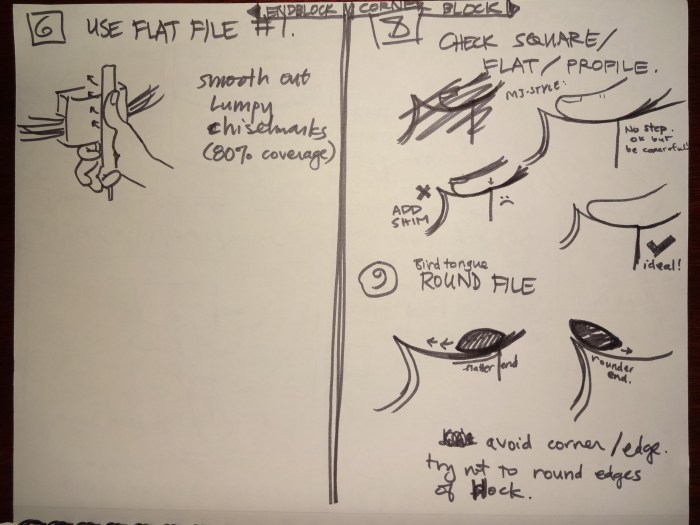 ENDBLOCK
CORNER BLOCK
6 USE FLAT FILE #1.
smooth out
Lumpy
chiselmarks
(80% coverage)
8
CHECK SQUARE/
FLAT/PROFILE.
MJ-STYLE:
No step.
ok but
be careful!
ADD
SHIM
ideal!
9 Bird tongue
ROUND FILE
flatter end
rounder
end.
avoid corner/edge.
try not to round edges
of block.